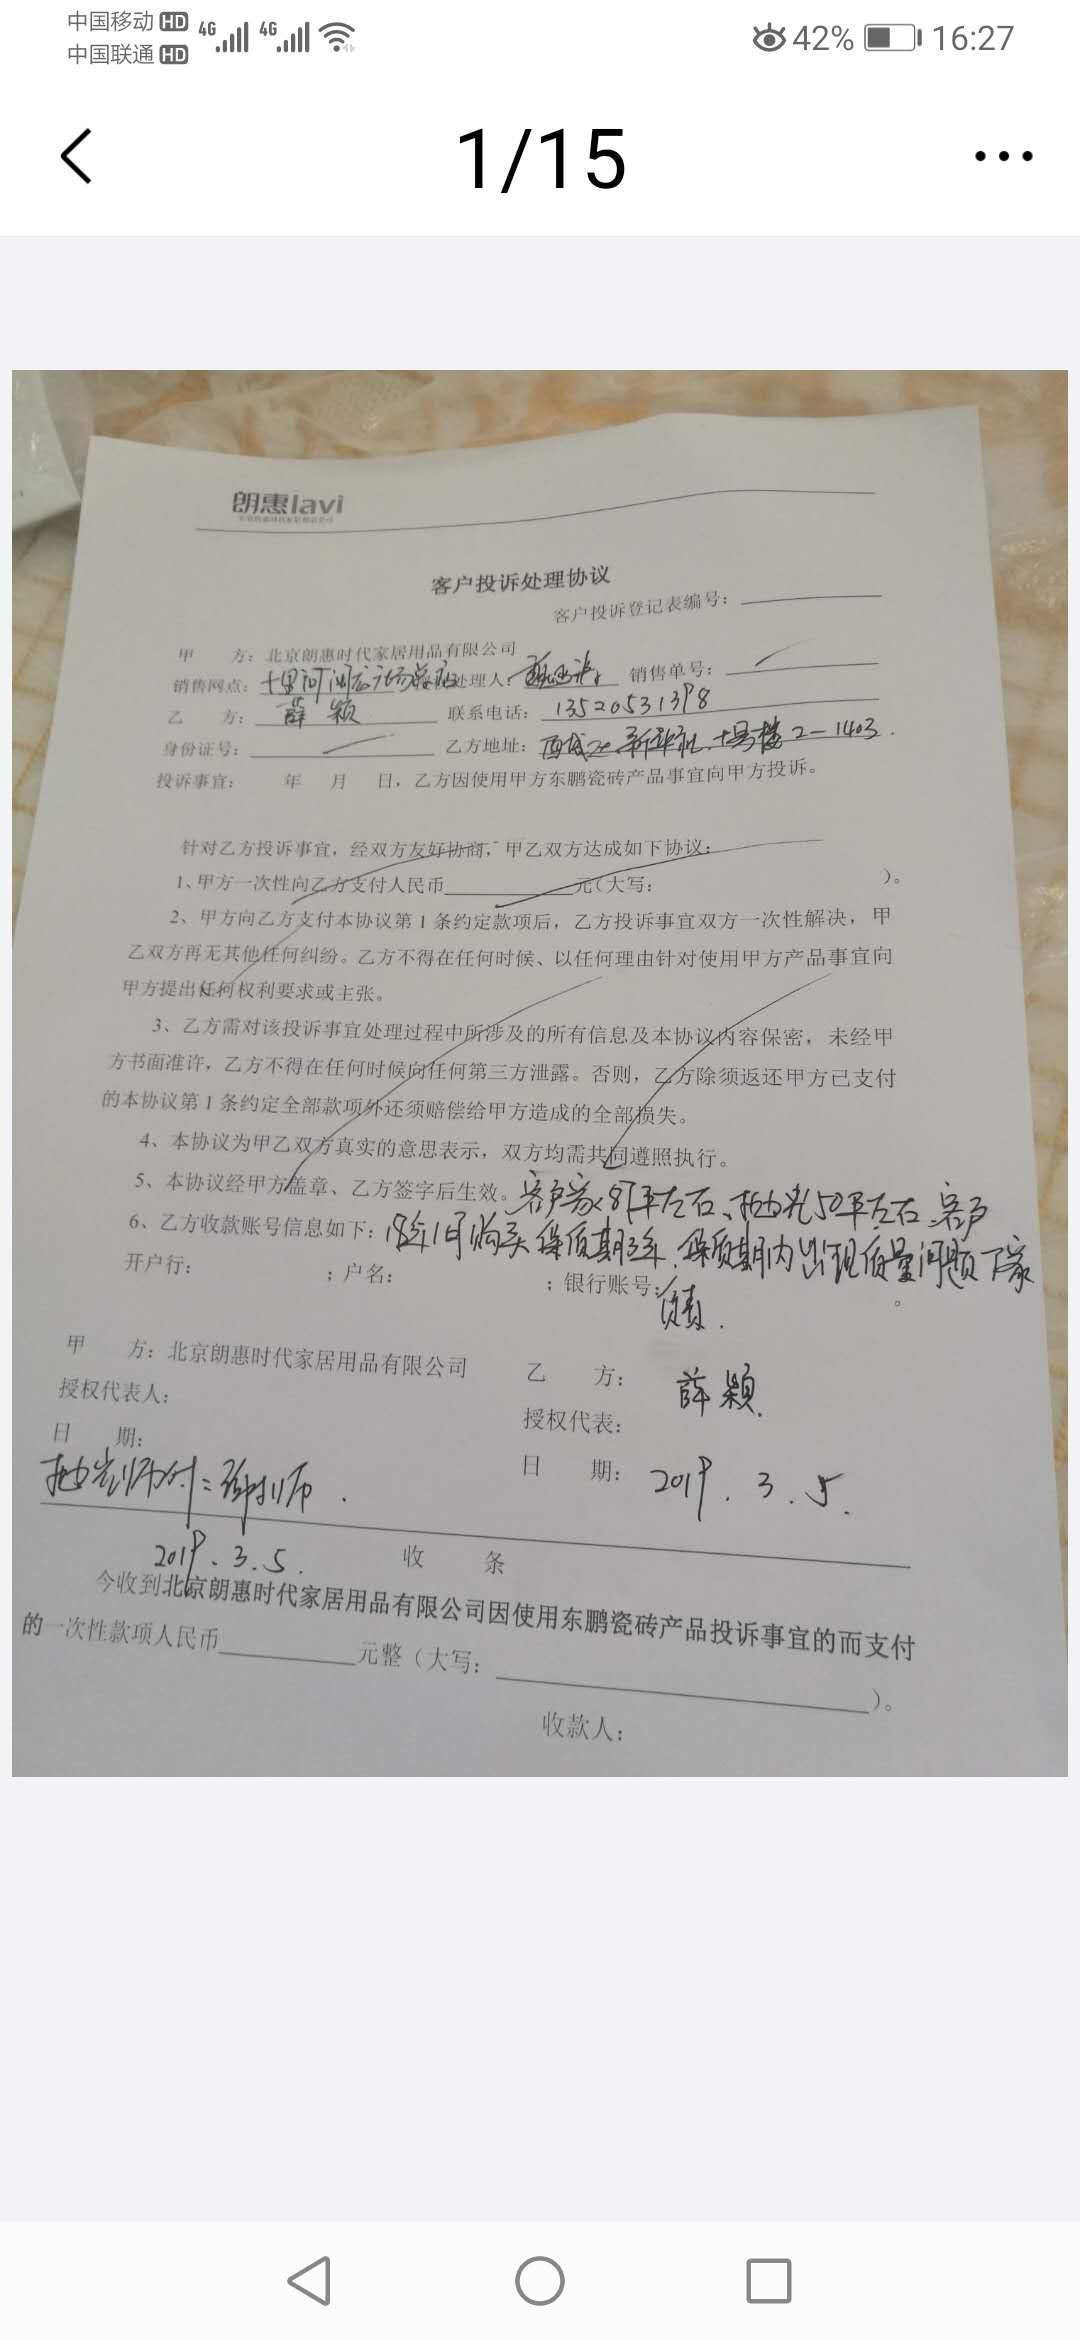 中国移动 HD 4G 4G 42% 16:27
中国联通 HD
1/15
朗惠lavi
客户投诉处理协议
客户投诉登记表编号:
甲 方: 北京朗惠时代家居用品有限公司
销售网点: 十里河闽龙广场总店 处理人: 销售单号:
乙 方: 薛颖 联系电话: 13520531398
身份证号: 乙方地址: 西城区 新华社 十号楼 2-1403.
投诉事宜: 年 月 日,乙方因使用甲方东鹏瓷砖产品事宜向甲方投诉。
针对乙方投诉事宜,经双方友好协商,甲乙双方达成如下协议:
1、甲方一次性向乙方支付人民币 元(大写: )。
2、甲方向乙方支付本协议第1条约定款项后,乙方投诉事宜双方一次性解决,甲
乙双方再无其他任何纠纷。乙方不得在任何时候、以任何理由针对使用甲方产品事宜向
甲方提出任何权利要求或主张。
3、乙方需对该投诉事宜处理过程中所涉及的所有信息及本协议内容保密,未经甲
方书面准许,乙方不得在任何时候向任何第三方泄露。否则,乙方除须返还甲方已支付
的本协议第1条约定全部款项外还须赔偿给甲方造成的全部损失。
4、本协议为甲乙双方真实的意思表示,双方均需共同遵照执行。
5、本协议经甲方盖章、乙方签字后生效。客户家 平左右、抛光50平左右、客户
6、乙方收款账号信息如下: 18年1月购买 保质期三年. 保质期内出现质量问题厂家
开户行: ;户名: ;银行账号: 。
负责.
甲 方: 北京朗惠时代家居用品有限公司 乙 方: 薛颖.
授权代表人: 授权代表:
日 期: 日 期: 2019.3.5.
抛光师付:
2019.3.5. 收 条
今收到北京朗惠时代家居用品有限公司因使用东鹏瓷砖产品投诉事宜的而支付
的一次性款项人民币 元整(大写: )。
收款人: